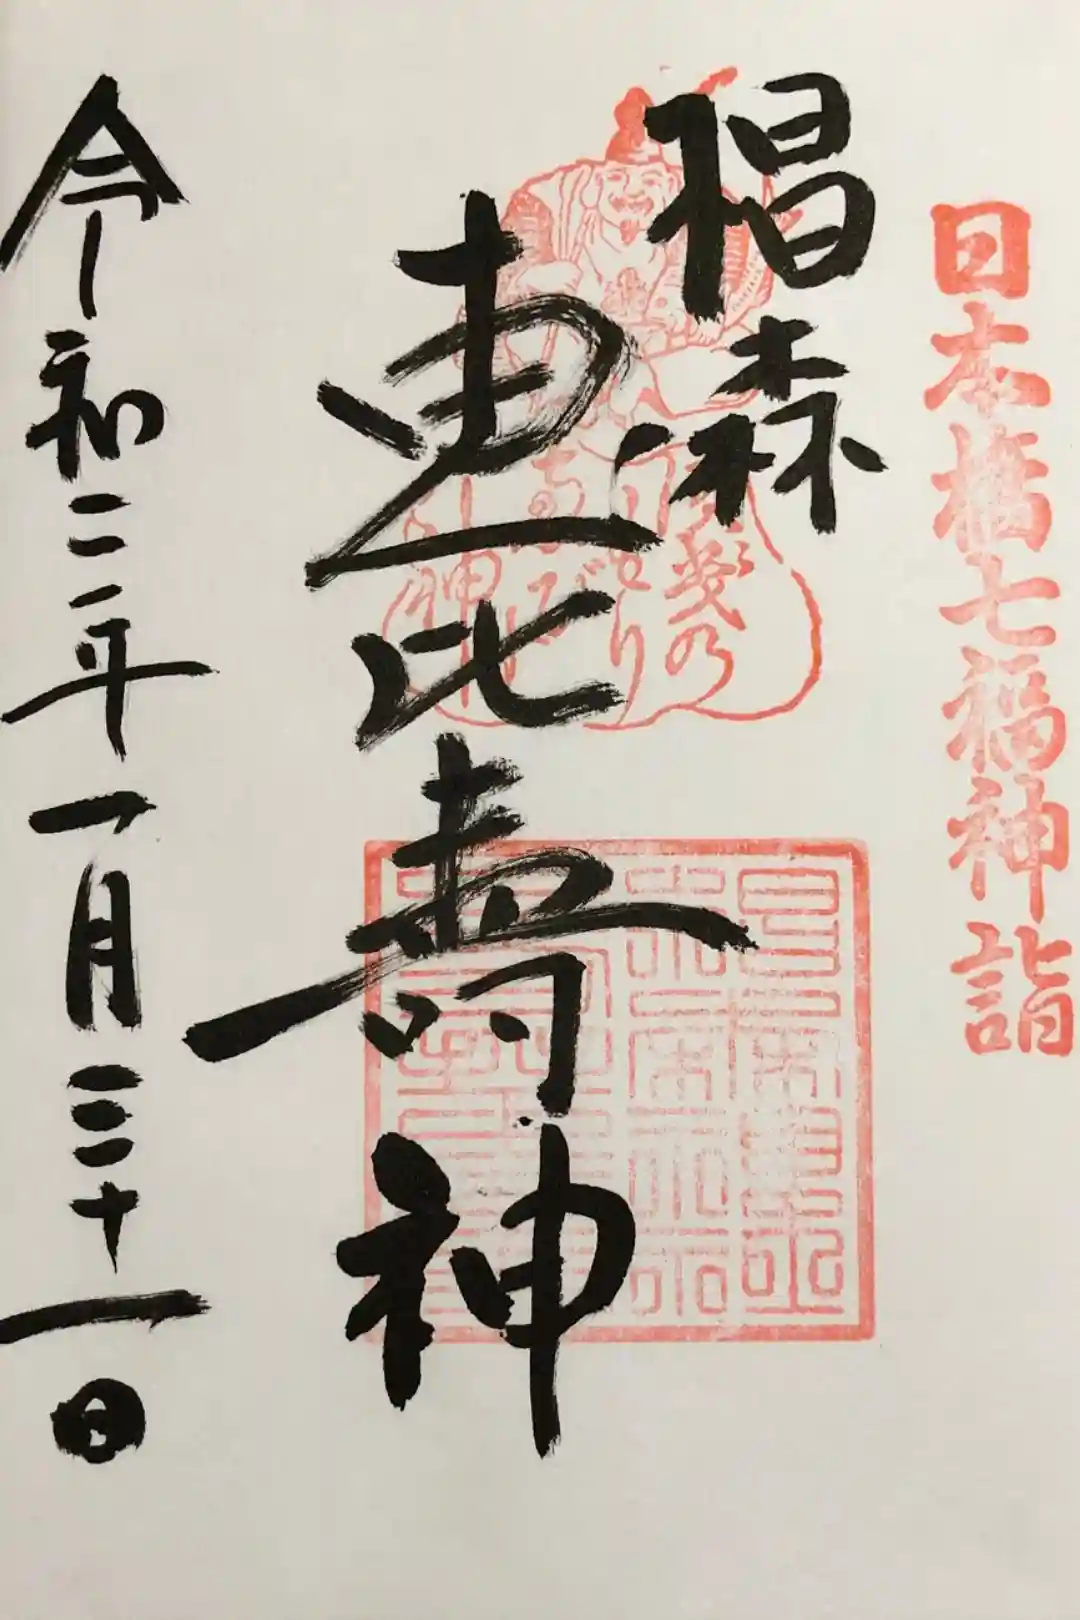 日本橋七福神詣
椙森
恵比寿神
令和二年一月三十一日